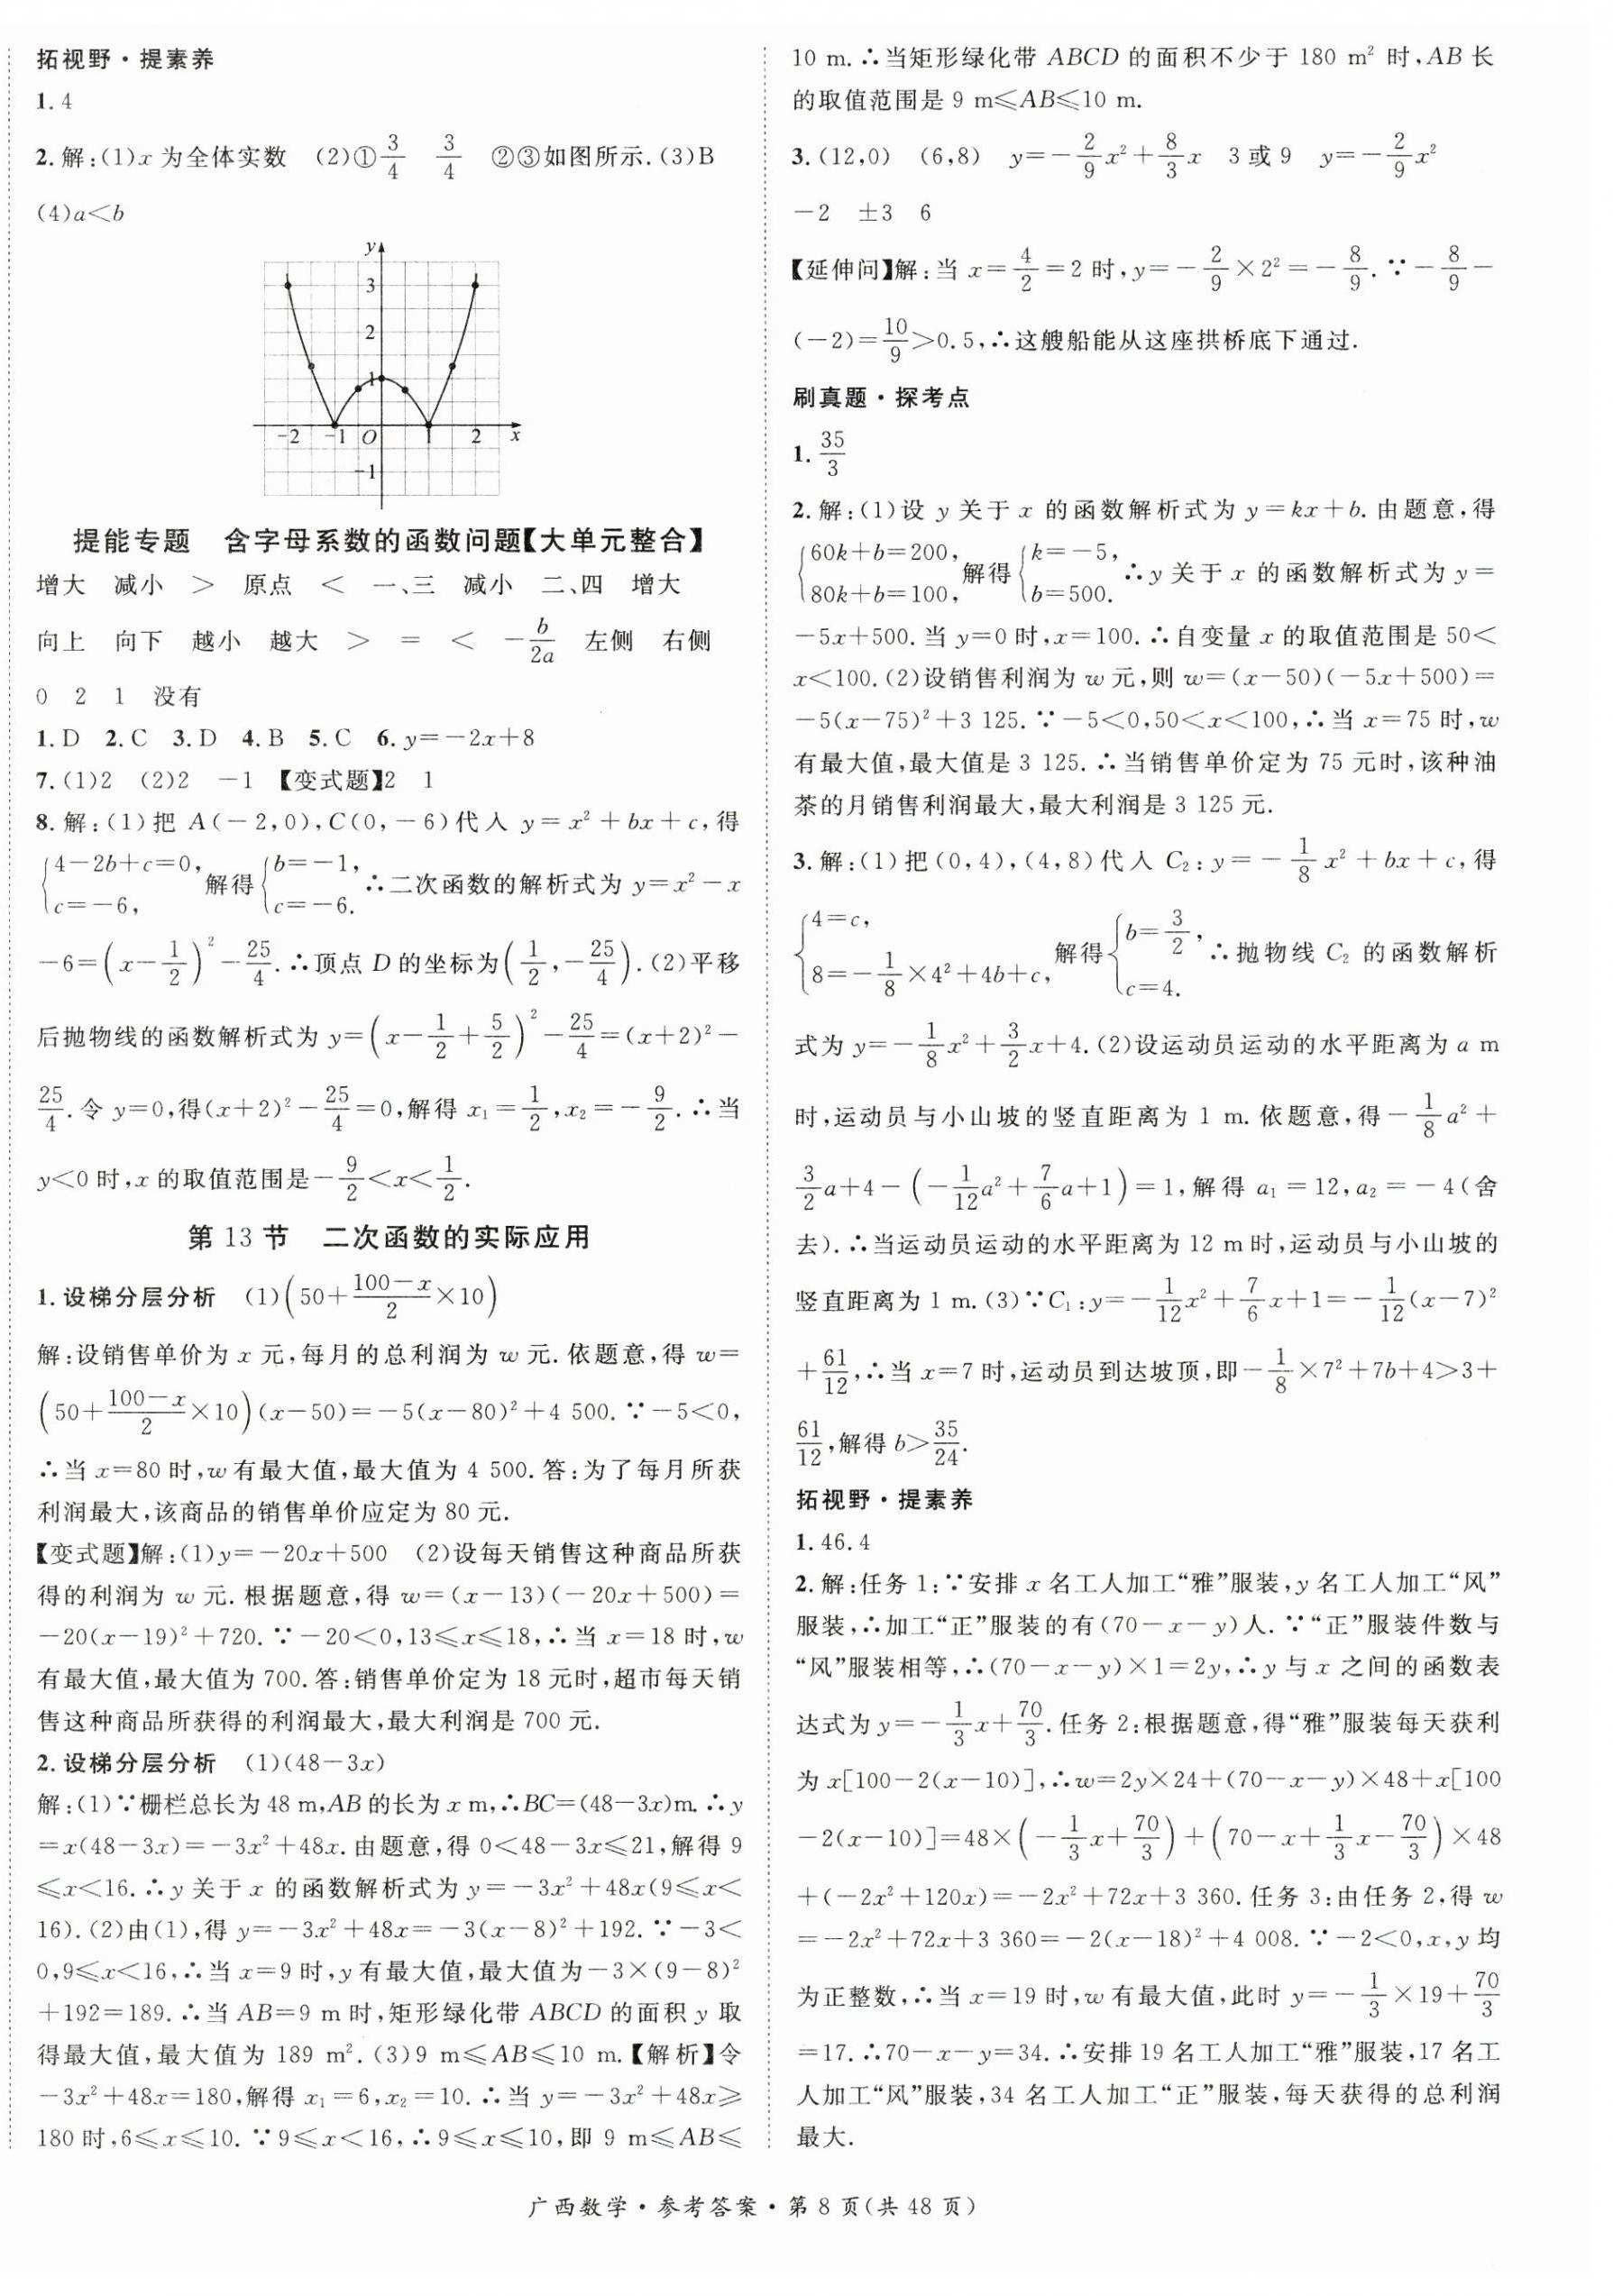 拓视野·提素养
1. 4
2. 解:(1)x 为全体实数 (2)①3/4 3/4 ②③如图所示. (3)B
(4)a<b
y
3
2
1
-2 -1 O 1 2 x
-1
提能专题 含字母系数的函数问题【大单元整合】
增大 减小 > 原点 < 一、三 减小 二、四 增大
向上 向下 越小 越大 > = < -b/2a 左侧 右侧
0 2 1 没有
1. D 2. C 3. D 4. B 5. C 6. y=-2x+8
7. (1)2 (2)2 -1 【变式题】2 1
8. 解:(1)把 A(-2,0),C(0,-6)代入 y=x²+bx+c,得
{4-2b+c=0, c=-6, 解得{b=-1, c=-6. ∴二次函数的解析式为 y=x²-x
-6=(x-1/2)²-25/4. ∴顶点 D 的坐标为(1/2,-25/4). (2)平移
后抛物线的函数解析式为 y=(x-1/2+5/2)²-25/4=(x+2)²-
25/4. 令 y=0,得(x+2)²-25/4=0,解得 x₁=1/2,x₂=-9/2. ∴当
y<0 时,x 的取值范围是-9/2<x<1/2.
第 13 节 二次函数的实际应用
1. 设梯分层分析 (1)(50+(100-x)/2×10)
解:设销售单价为 x 元,每月的总利润为 w 元. 依题意,得 w=
(50+(100-x)/2×10)(x-50)=-5(x-80)²+4 500. ∵-5<0,
∴当 x=80 时,w 有最大值,最大值为 4 500. 答:为了每月所获
利润最大,该商品的销售单价应定为 80 元.
【变式题】解:(1)y=-20x+500 (2)设每天销售这种商品所获
得的利润为 w 元. 根据题意,得 w=(x-13)(-20x+500)=
-20(x-19)²+720. ∵-20<0,13≤x≤18,∴当 x=18 时,w
有最大值,最大值为 700. 答:销售单价定为 18 元时,超市每天销
售这种商品所获得的利润最大,最大利润是 700 元.
2. 设梯分层分析 (1)(48-3x)
解:(1)∵栅栏总长为 48 m,AB 的长为 x m,∴BC=(48-3x)m. ∴y
=x(48-3x)=-3x²+48x. 由题意,得 0<48-3x≤21,解得 9
≤x<16. ∴y 关于 x 的函数解析式为 y=-3x²+48x(9≤x<
16). (2)由(1),得 y=-3x²+48x=-3(x-8)²+192. ∵-3<
0,9≤x<16,∴当 x=9 时,y 有最大值,最大值为-3×(9-8)²
+192=189. ∴当 AB=9 m 时,矩形绿化带 ABCD 的面积 y 取
得最大值,最大值为 189 m². (3)9 m≤AB≤10 m. 【解析】令
-3x²+48x=180,解得 x₁=6,x₂=10. ∴当 y=-3x²+48x≥
180 时,6≤x≤10. ∵9≤x<16,∴9≤x≤10,即 9 m≤AB≤
10 m. ∴当矩形绿化带 ABCD 的面积不少于 180 m² 时,AB 长
的取值范围是 9 m≤AB≤10 m.
3. (12,0) (6,8) y=-2/9x²+8/3x 3 或 9 y=-2/9x²
-2 ±3 6
【延伸问】解:当 x=4/2=2 时,y=-2/9×2²=-8/9. ∵-8/9-
(-2)=10/9>0.5,∴这艘船能从这座拱桥底下通过.
刷真题·探考点
1. 35/3
2. 解:(1)设 y 关于 x 的函数解析式为 y=kx+b. 由题意,得
{60k+b=200, 80k+b=100, 解得{k=-5, b=500. ∴y 关于 x 的函数解析式为 y=
-5x+500. 当 y=0 时,x=100. ∴自变量 x 的取值范围是 50<
x<100. (2)设销售利润为 w 元,则 w=(x-50)(-5x+500)=
-5(x-75)²+3 125. ∵-5<0,50<x<100,∴当 x=75 时,w
有最大值,最大值是 3 125. ∴当销售单价定为 75 元时,该种油
茶的月销售利润最大,最大利润是 3 125 元.
3. 解:(1)把(0,4),(4,8)代入 C₂:y=-1/8x²+bx+c,得
{4=c, 8=-1/8×4²+4b+c, 解得{b=3/2, c=4. ∴抛物线 C₂ 的函数解析
式为 y=-1/8x²+3/2x+4. (2)设运动员运动的水平距离为 a m
时,运动员与小山坡的竖直距离为 1 m. 依题意,得-1/8a²+
3/2a+4-(-1/12a²+7/6a+1)=1,解得 a₁=12,a₂=-4(舍
去). ∴当运动员运动的水平距离为 12 m 时,运动员与小山坡的
竖直距离为 1 m. (3)∵C₁:y=-1/12x²+7/6x+1=-1/12(x-7)²
+61/12,∴当 x=7 时,运动员到达坡顶,即-1/8×7²+7b+4>3+
61/12,解得 b>35/24.
拓视野·提素养
1. 46.4
2. 解:任务 1:∵安排 x 名工人加工“雅”服装,y 名工人加工“风”
服装,∴加工“正”服装的有(70-x-y)人. ∵“正”服装件数与
“风”服装相等,∴(70-x-y)×1=2y,∴y 与 x 之间的函数表
达式为 y=-1/3x+70/3. 任务 2:根据题意,得“雅”服装每天获利
为 x[100-2(x-10)],∴w=2y×24+(70-x-y)×48+x[100
-2(x-10)]=48×(-1/3x+70/3)+(70-x+1/3x-70/3)×48
+(-2x²+120x)=-2x²+72x+3 360. 任务 3:由任务 2,得 w
=-2x²+72x+3 360=-2(x-18)²+4 008. ∵-2<0,x,y 均
为正整数,∴当 x=19 时,w 有最大值,此时 y=-1/3×19+70/3
=17. ∴70-x-y=34. ∴安排 19 名工人加工“雅”服装,17 名工
人加工“风”服装,34 名工人加工“正”服装,每天获得的总利润
最大.
广西数学·参考答案·第 8 页(共 48 页)